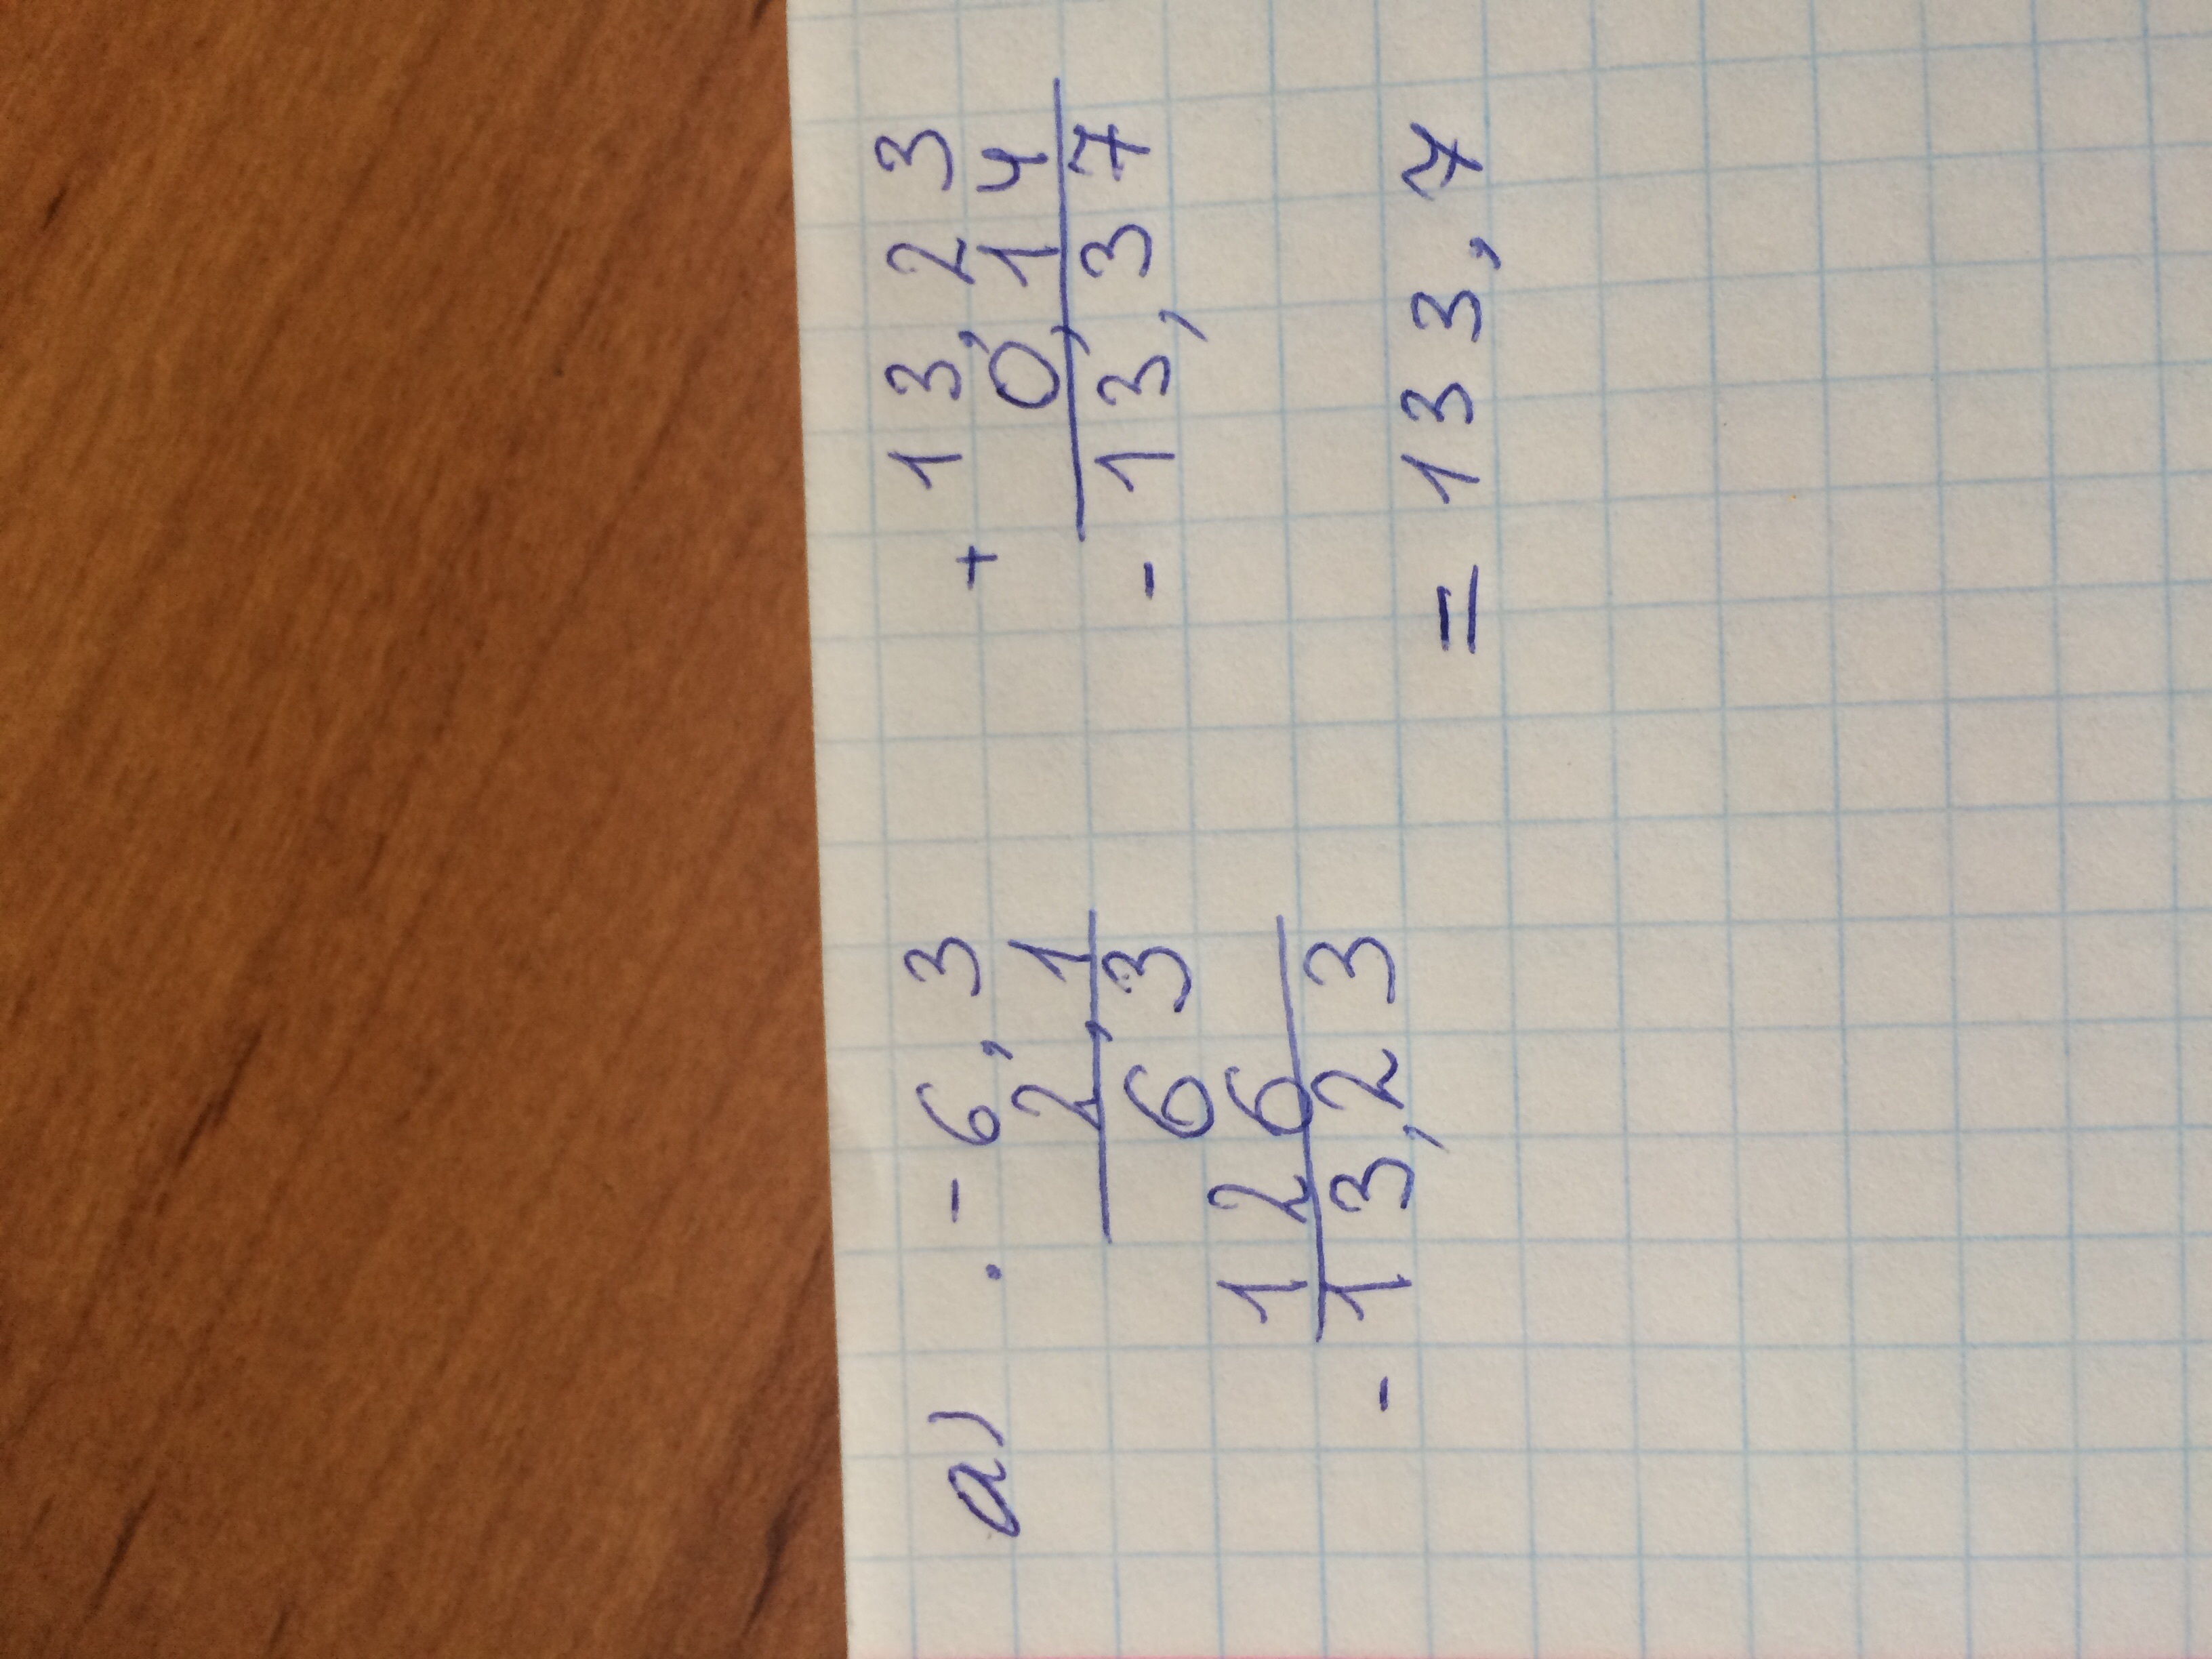 а) · - 6,3
2,1
6 3
1 2 6
- 1 3,2 3
+ 1 3,2 3
0,1 4
- 1 3,3 7
= 1 3 3,7